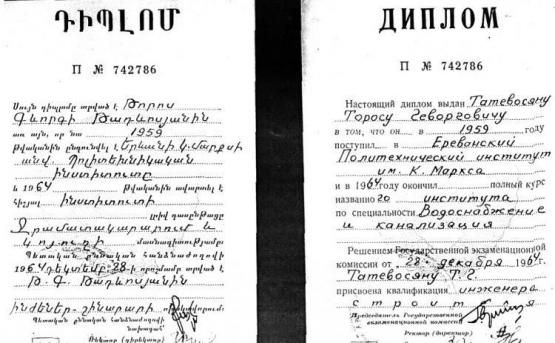 ԴԻՊԼՈՄ
П № 742786
Սույն դիպլոմը տրված է Թորոս
Գևորգի Թադևոսյանին
առ այն, որ նա 1959
թվականին ընդունվել է Երևանի Կ. Մարքսի
անվ. Պոլիտեխնիկական
ինստիտուտը
և 1964 թվականին ավարտել է
նշյալ ինստիտուտի
լրիվ դասընթացը
Ջրամատակարարում և
կոյուղի մասնագիտությամբ:
Պետական քննական հանձնաժողովի
1964 դեկտեմբ. 28-ի որոշմամբ տրված է
Թ. Գ. Թադևոսյանին
ինժեներ-շինարարի որակավորում:
Պետական քննական հանձնաժողովի
նախագահ
Ռեկտոր (դիրեկտոր)
ДИПЛОМ
П № 742786
Настоящий диплом выдан Татевосяну
Торосу Геворговичу
в том, что он в 1959 году
поступил в Ереванский
Политехнический институт
им. К. Маркса
и в 1964 году окончил полный курс
названного института
по специальности Водоснабжение
и канализация
Решением Государственной экзаменационной
комиссии от 28 декабря 1964 г.
Татевосяну Т. Г.
присвоена квалификация инженера
строит
Председатель Государственной
экзаменационной комиссии
Ректор (директор)